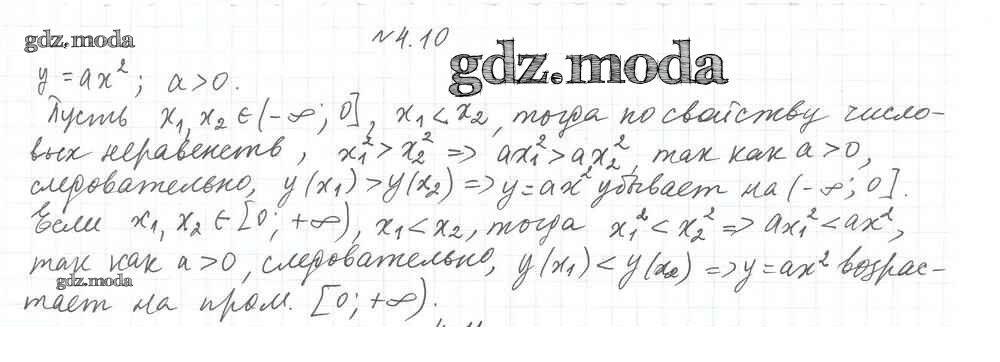 gdz.moda
№4.10
gdz.moda
y = ax²; a>0.
Пусть x₁, x₂ ∈ (-∞; 0], x₁ < x₂, тогда по свойству число-
вых неравенств, x₁² > x₂² => ax₁² > ax₂², так как a > 0,
следовательно, y(x₁) > y(x₂) => y = ax² убывает на (-∞; 0].
Если x₁, x₂ ∈ [0; +∞), x₁ < x₂, тогда x₁² < x₂² => ax₁² < ax²,
так как a > 0, следовательно, y(x₁) < y(x₂) => y = ax² возрас-
gdz.moda
тает на пром. [0; +∞).